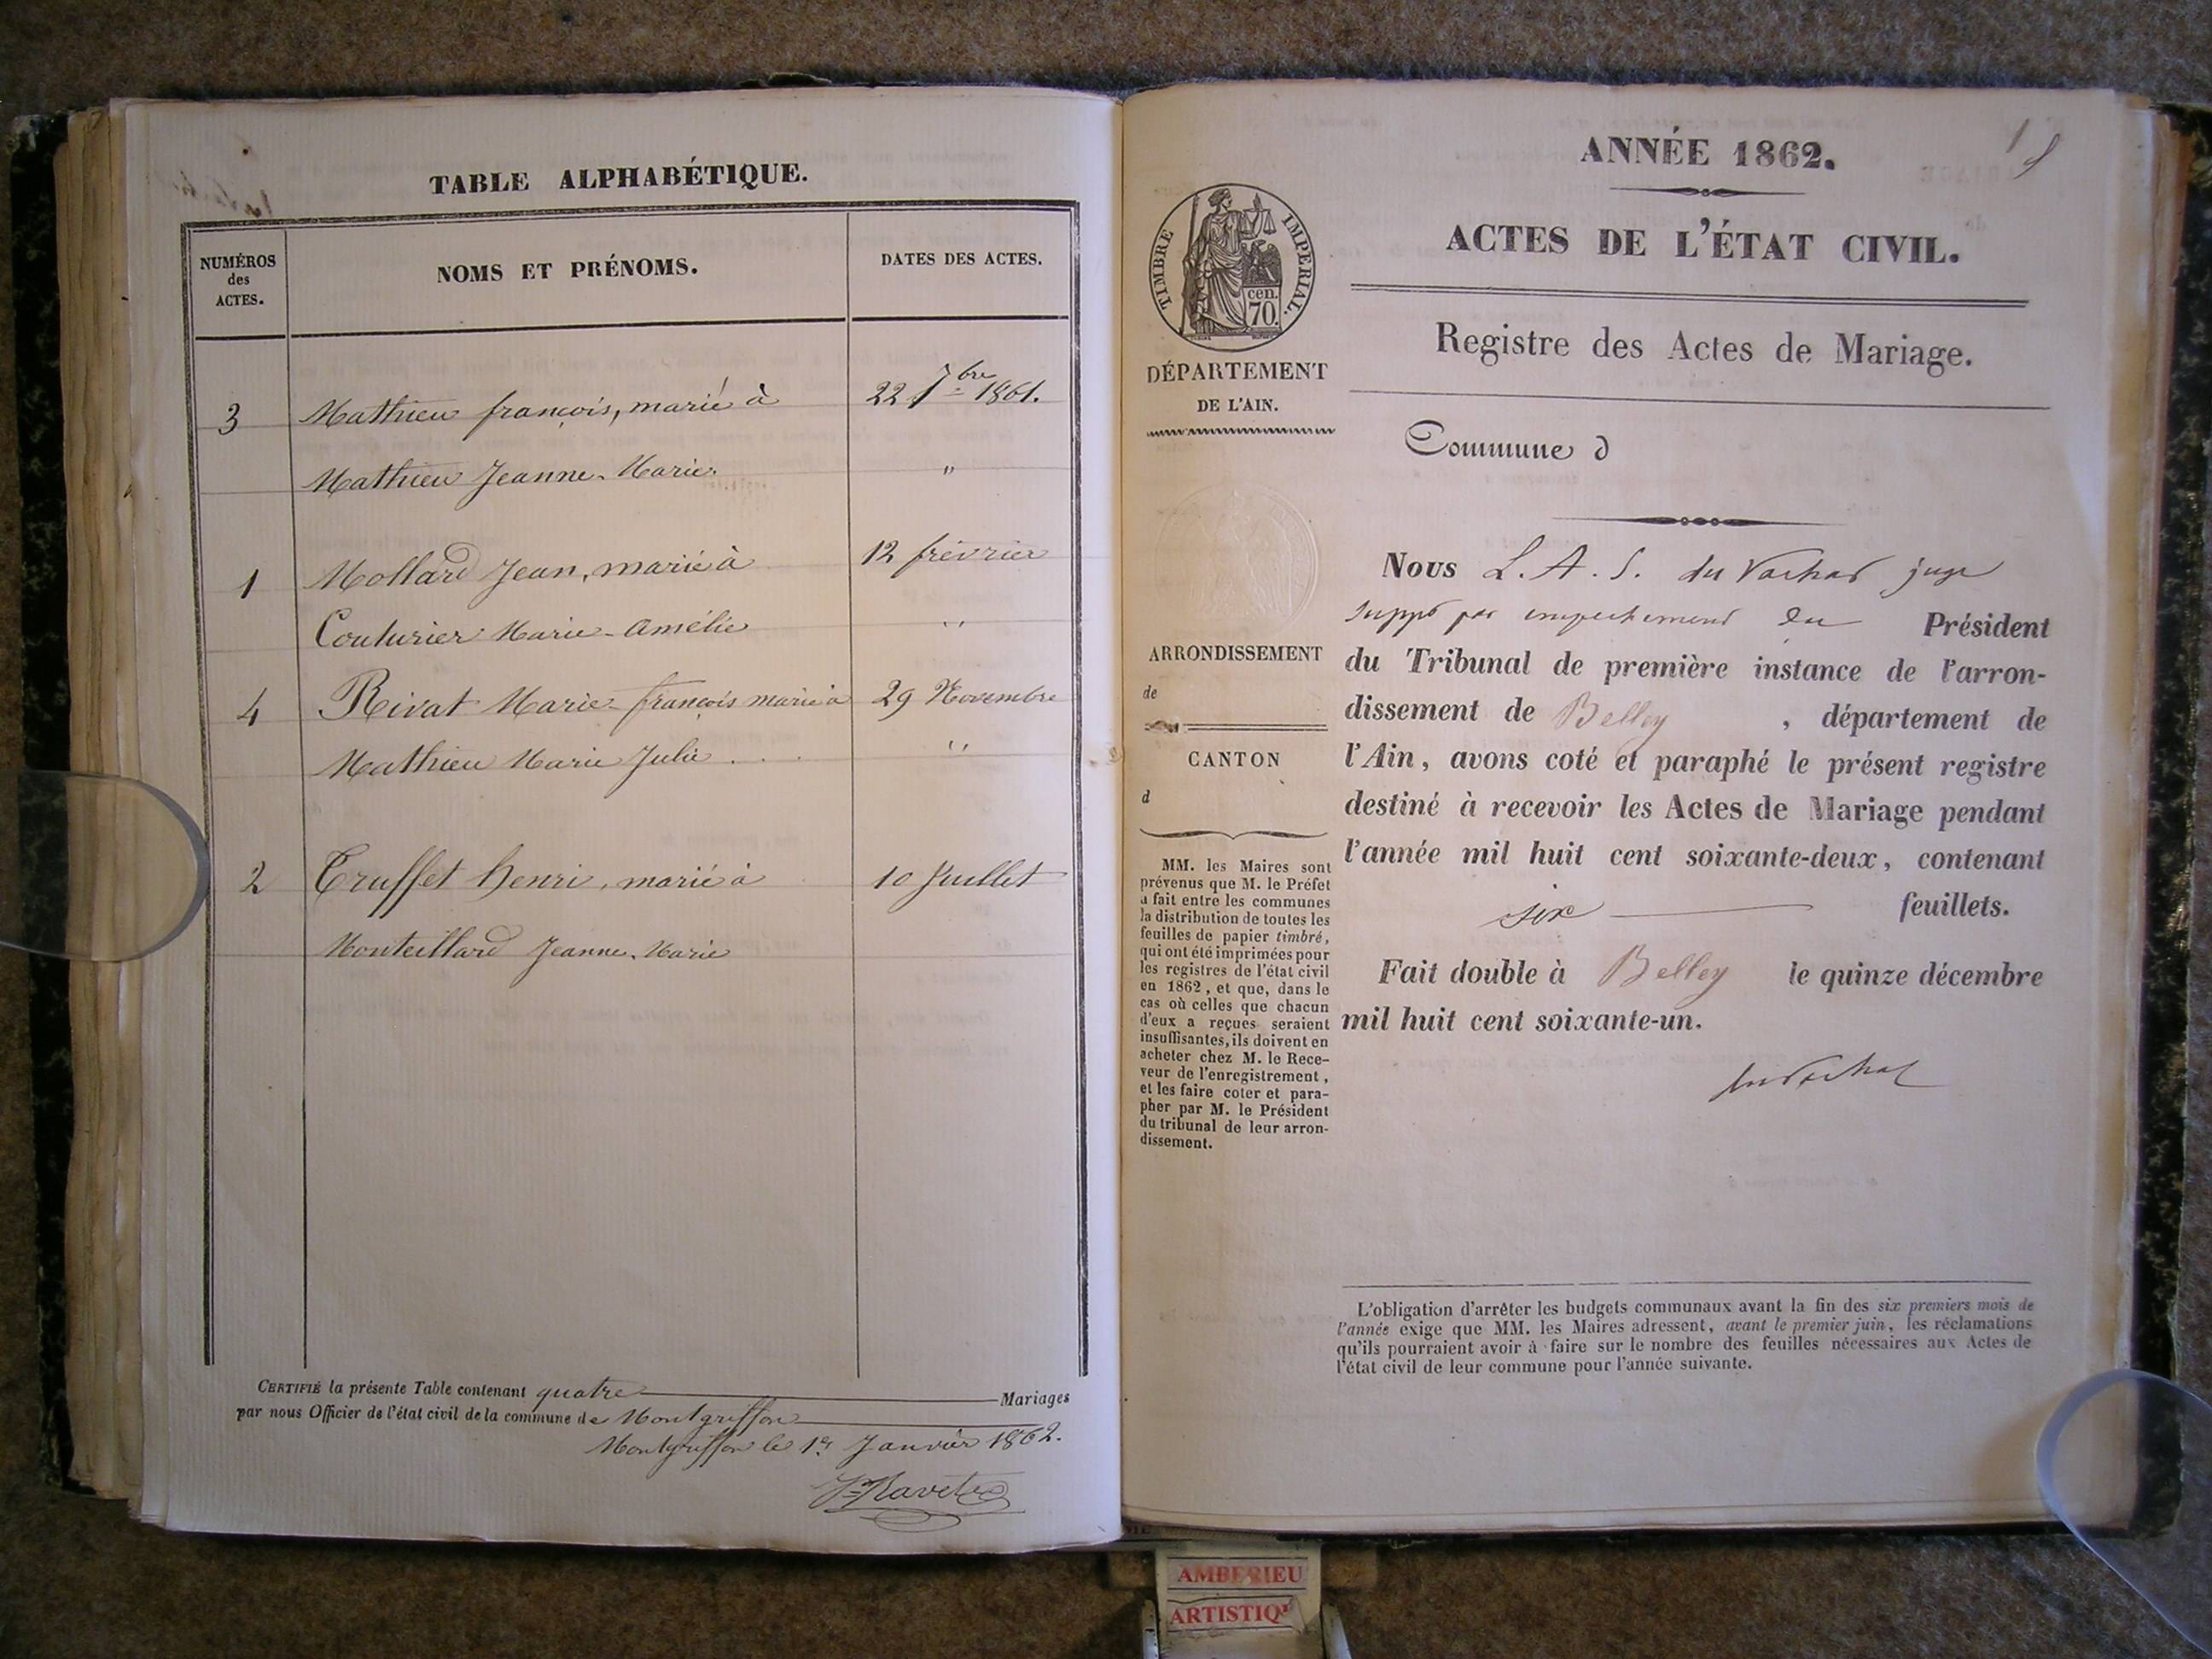 TABLE ALPHABÉTIQUE.
NUMÉROS
des
ACTES.
NOMS ET PRÉNOMS.
DATES DES ACTES.
3 Mathieu françois, marié à 22 7bre 1861.
Mathieu Jeanne-Marie "
1 Mollard Jean, marié à 12 février
Couturier Marie-Amélie "
4 Rivat Marie-françois marié à 29 Novembre
Mathieu Marie Julie . . . "
2 Truffet henri, marié à 10 Juillet
Monteillard Jeanne-Marie
CERTIFIÉ la présente Table contenant quatre Mariages
par nous Officier de l'état civil de la commune de Montgriffon
Montgriffon le 1er Janvier 1862.
ANNÉE 1862.
1
ACTES DE L'ÉTAT CIVIL.
Registre des Actes de Mariage.
TIMBRE IMPERIAL.
cen.
70.
DÉPARTEMENT
DE L'AIN.
Commune d
ARRONDISSEMENT
de
CANTON
d
MM. les Maires sont
prévenus que M. le Préfet
a fait entre les communes
la distribution de toutes les
feuilles de papier timbré,
qui ont été imprimées pour
les registres de l'état civil
en 1862, et que, dans le
cas où celles que chacun
d'eux a reçues seraient
insuffisantes, ils doivent en
acheter chez M. le Rece-
veur de l'enregistrement,
et les faire coter et para-
pher par M. le Président
du tribunal de leur arron-
dissement.
Nous L. A. S. du Vachat juge
suppt par empechement du Président
du Tribunal de première instance de l'arron-
dissement de Belley, département de
l'Ain, avons coté et paraphé le présent registre
destiné à recevoir les Actes de Mariage pendant
l'année mil huit cent soixante-deux, contenant
six feuillets.
Fait double à Belley le quinze décembre
mil huit cent soixante-un.
du Vachat
L'obligation d'arrêter les budgets communaux avant la fin des six premiers mois de
l'année exige que MM. les Maires adressent, avant le premier juin, les réclamations
qu'ils pourraient avoir à faire sur le nombre des feuilles nécessaires aux Actes de
l'état civil de leur commune pour l'année suivante.
AMBERIEU
ARTISTIQ